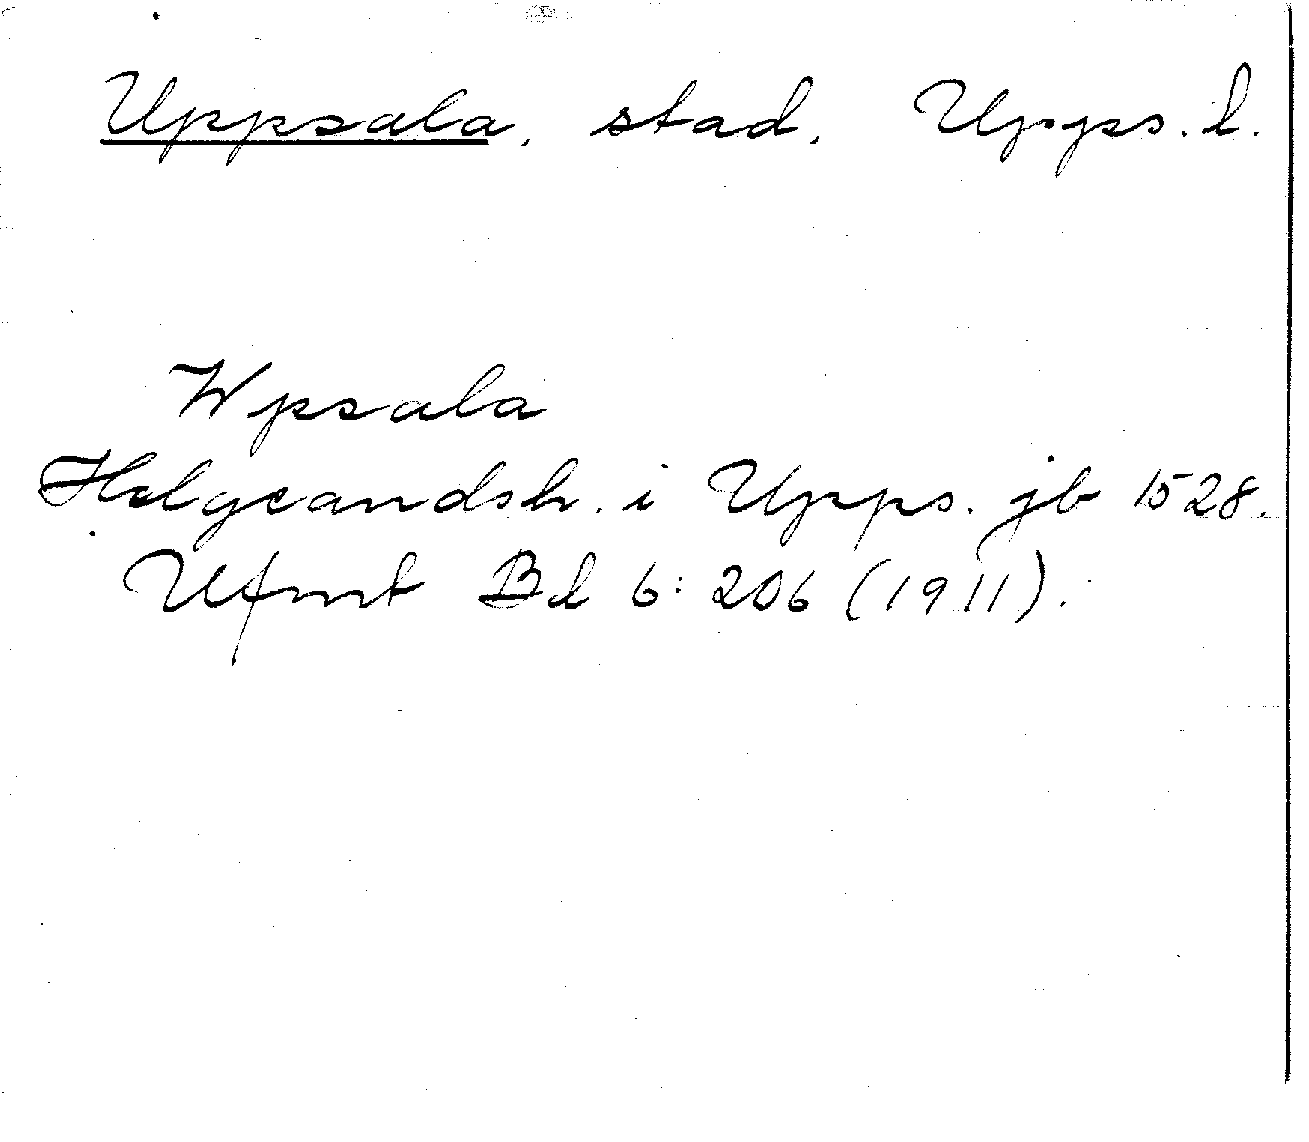 Uppsala, stad, Upps. l.
Wpsala
Helgeandsh. i Upps. jb 1528.
Ufmt Bd 6: 206 (1911).